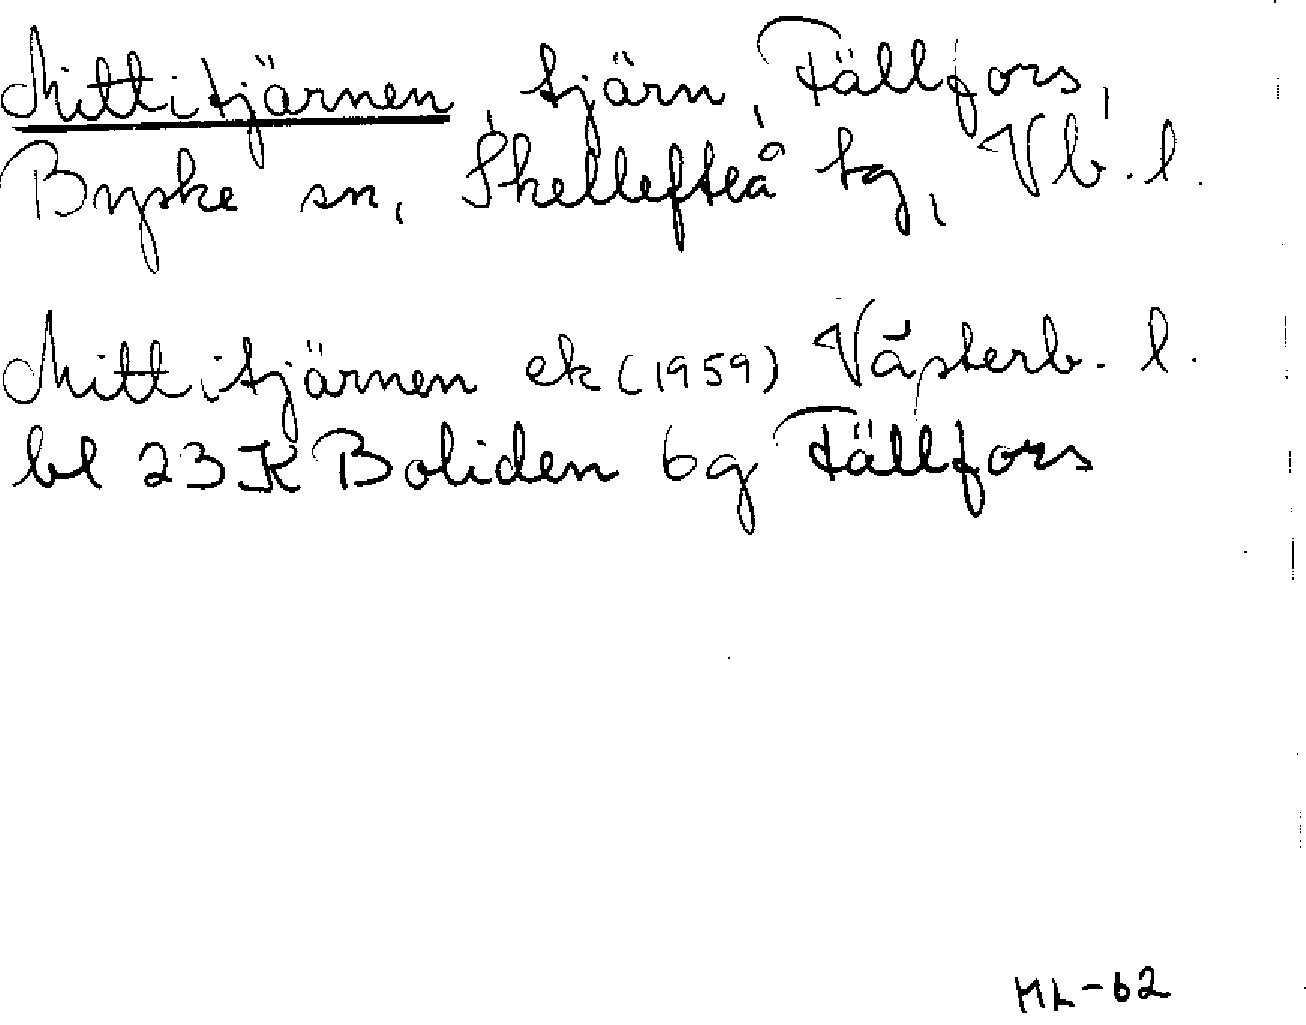 Mittitjärnen, tjärn, Fällfors,
Byske sn, Skellefteå tg, Vb. l.
Mittitjärnen ek (1959) Västerb. l.
bl 23 K Boliden bg Fällfors
ML-62